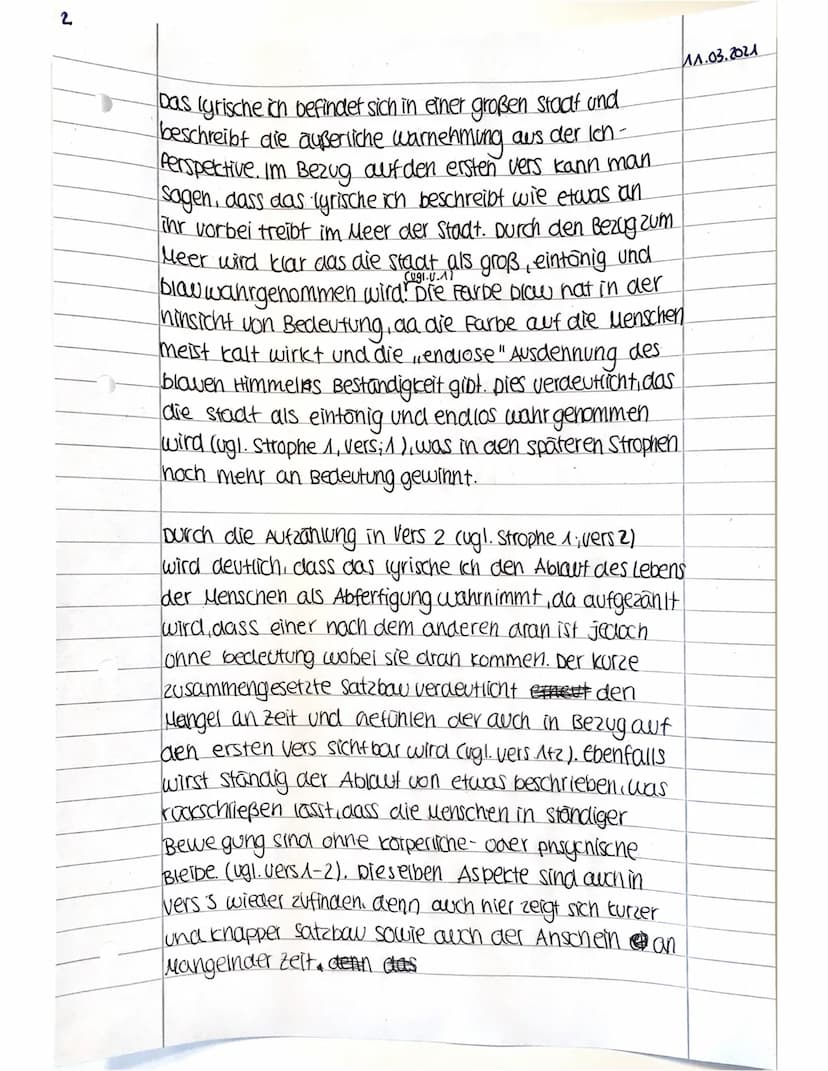 2
11.03.2021
Das lyrische ich befindet sich in einer großen Stadt und
beschreibt die äußerliche warnehmung aus der Ich-
Perspektive. Im Bezug auf den ersten vers kann man
sagen, dass das lyrische ich beschreibt wie etwas an
ihr vorbei treibt im Meer der Stadt. Durch den Bezug zum
Meer wird klar das die stadt als groß, eintönig und
(vgl. v. 1)
blau wahrgenommen wird. Die Farbe blau hat in der
hinsicht von Bedeutung, da die Farbe auf die Menschen
meist kalt wirkt und die „endlose" Ausdennung des
blauen Himmeles Beständigkeit gibt. Dies verdeutlicht, das
die stadt als eintönig und endlos wahrgenommen
wird (vgl. Strophe 1, vers; 1), was in den späteren Strophen
noch mehr an Bedeutung gewinnt.
Durch die Aufzählung in Vers 2 (vgl. Strophe 1; vers 2)
wird deutlich, dass das lyrische ich den Ablauf des Lebens
der Menschen als Abfertigung wahrnimmt, da aufgezählt
wird, dass einer nach dem anderen dran ist jedoch
ohne bedeutung wobei sie dran kommen. Der kurze
zusammengesetzte Satzbau verdeutlicht erneut den
Mangel an Zeit und Gefühlen der auch in Bezug auf
den ersten Vers sichtbar wird (vgl. vers 1+2). Ebenfalls
wirst ständig der Ablauf von etwas beschrieben, was
rückschließen lässt, dass die Menschen in ständiger
Bewegung sind ohne körperliche- oder phsychische
Bleibe. (vgl. vers 1-2). Dieselben Aspekte sind auch in
Vers 3 wieder zufinden, denn auch hier zeigt sich kurzer
und knapper Satzbau sowie auch der Anschein an
Mangelnder Zeit. denn das